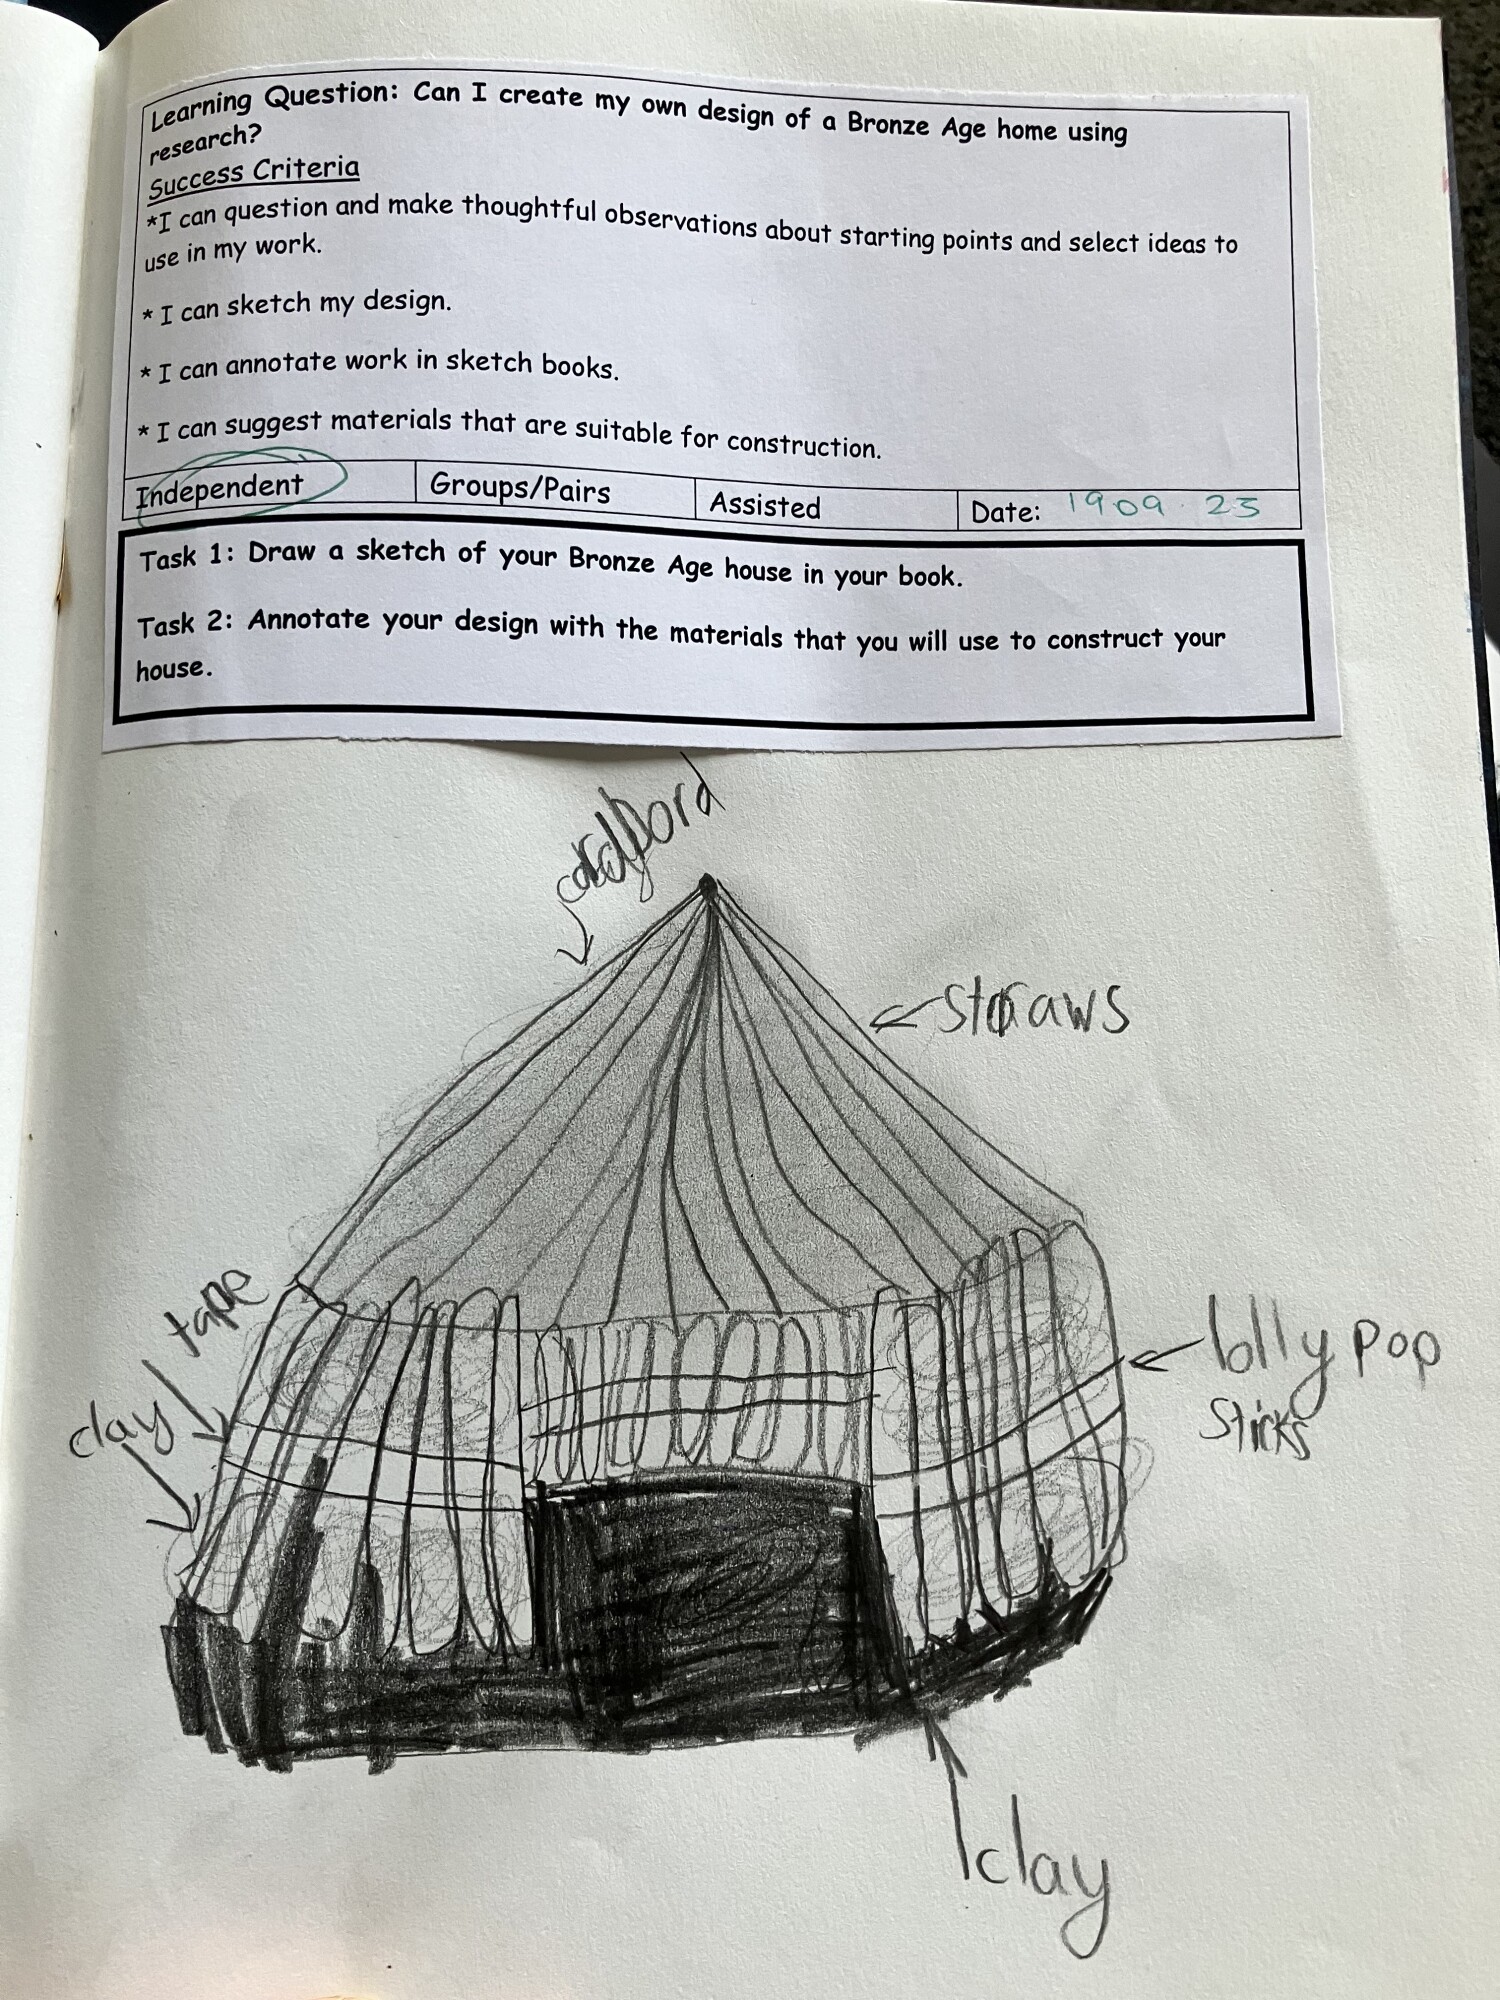 Learning Question: Can I create my own design of a Bronze Age home using
research?
Success Criteria
*I can question and make thoughtful observations about starting points and select ideas to
use in my work.
* I can sketch my design.
* I can annotate work in sketch books.
* I can suggest materials that are suitable for construction.
Independent
Groups/Pairs
Assisted
Date: 19.09.23
Task 1: Draw a sketch of your Bronze Age house in your book.
Task 2: Annotate your design with the materials that you will use to construct your
house.
straws
tape
clay
lolly pop
sticks
clay